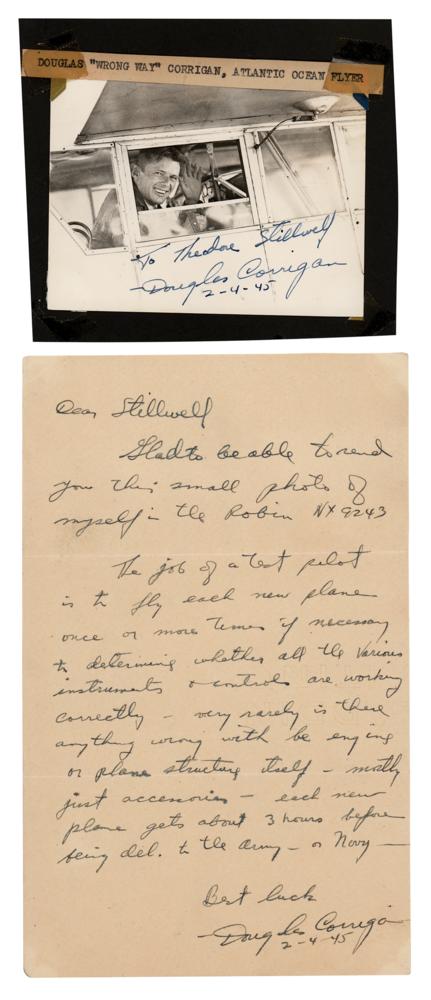 DOUGLAS "WRONG WAY" CORRIGAN, ATLANTIC OCEAN FLYER
To Theodore Stillwell
Douglas Corrigan
2-4-45
Dear Stillwell
Glad to be able to send
you this small photo of
myself in the Robin NX 9243
The job of a test pilot
is to fly each new plane
once or more times if necessary
to determine whether all the various
instruments & controls are working
correctly - very rarely is there
anything wrong with be engine
or plane structure itself - mostly
just accessories - each new
plane gets about 3 hours before
being del. to the army - or Navy -
Best luck
Douglas Corrigan
2-4-45